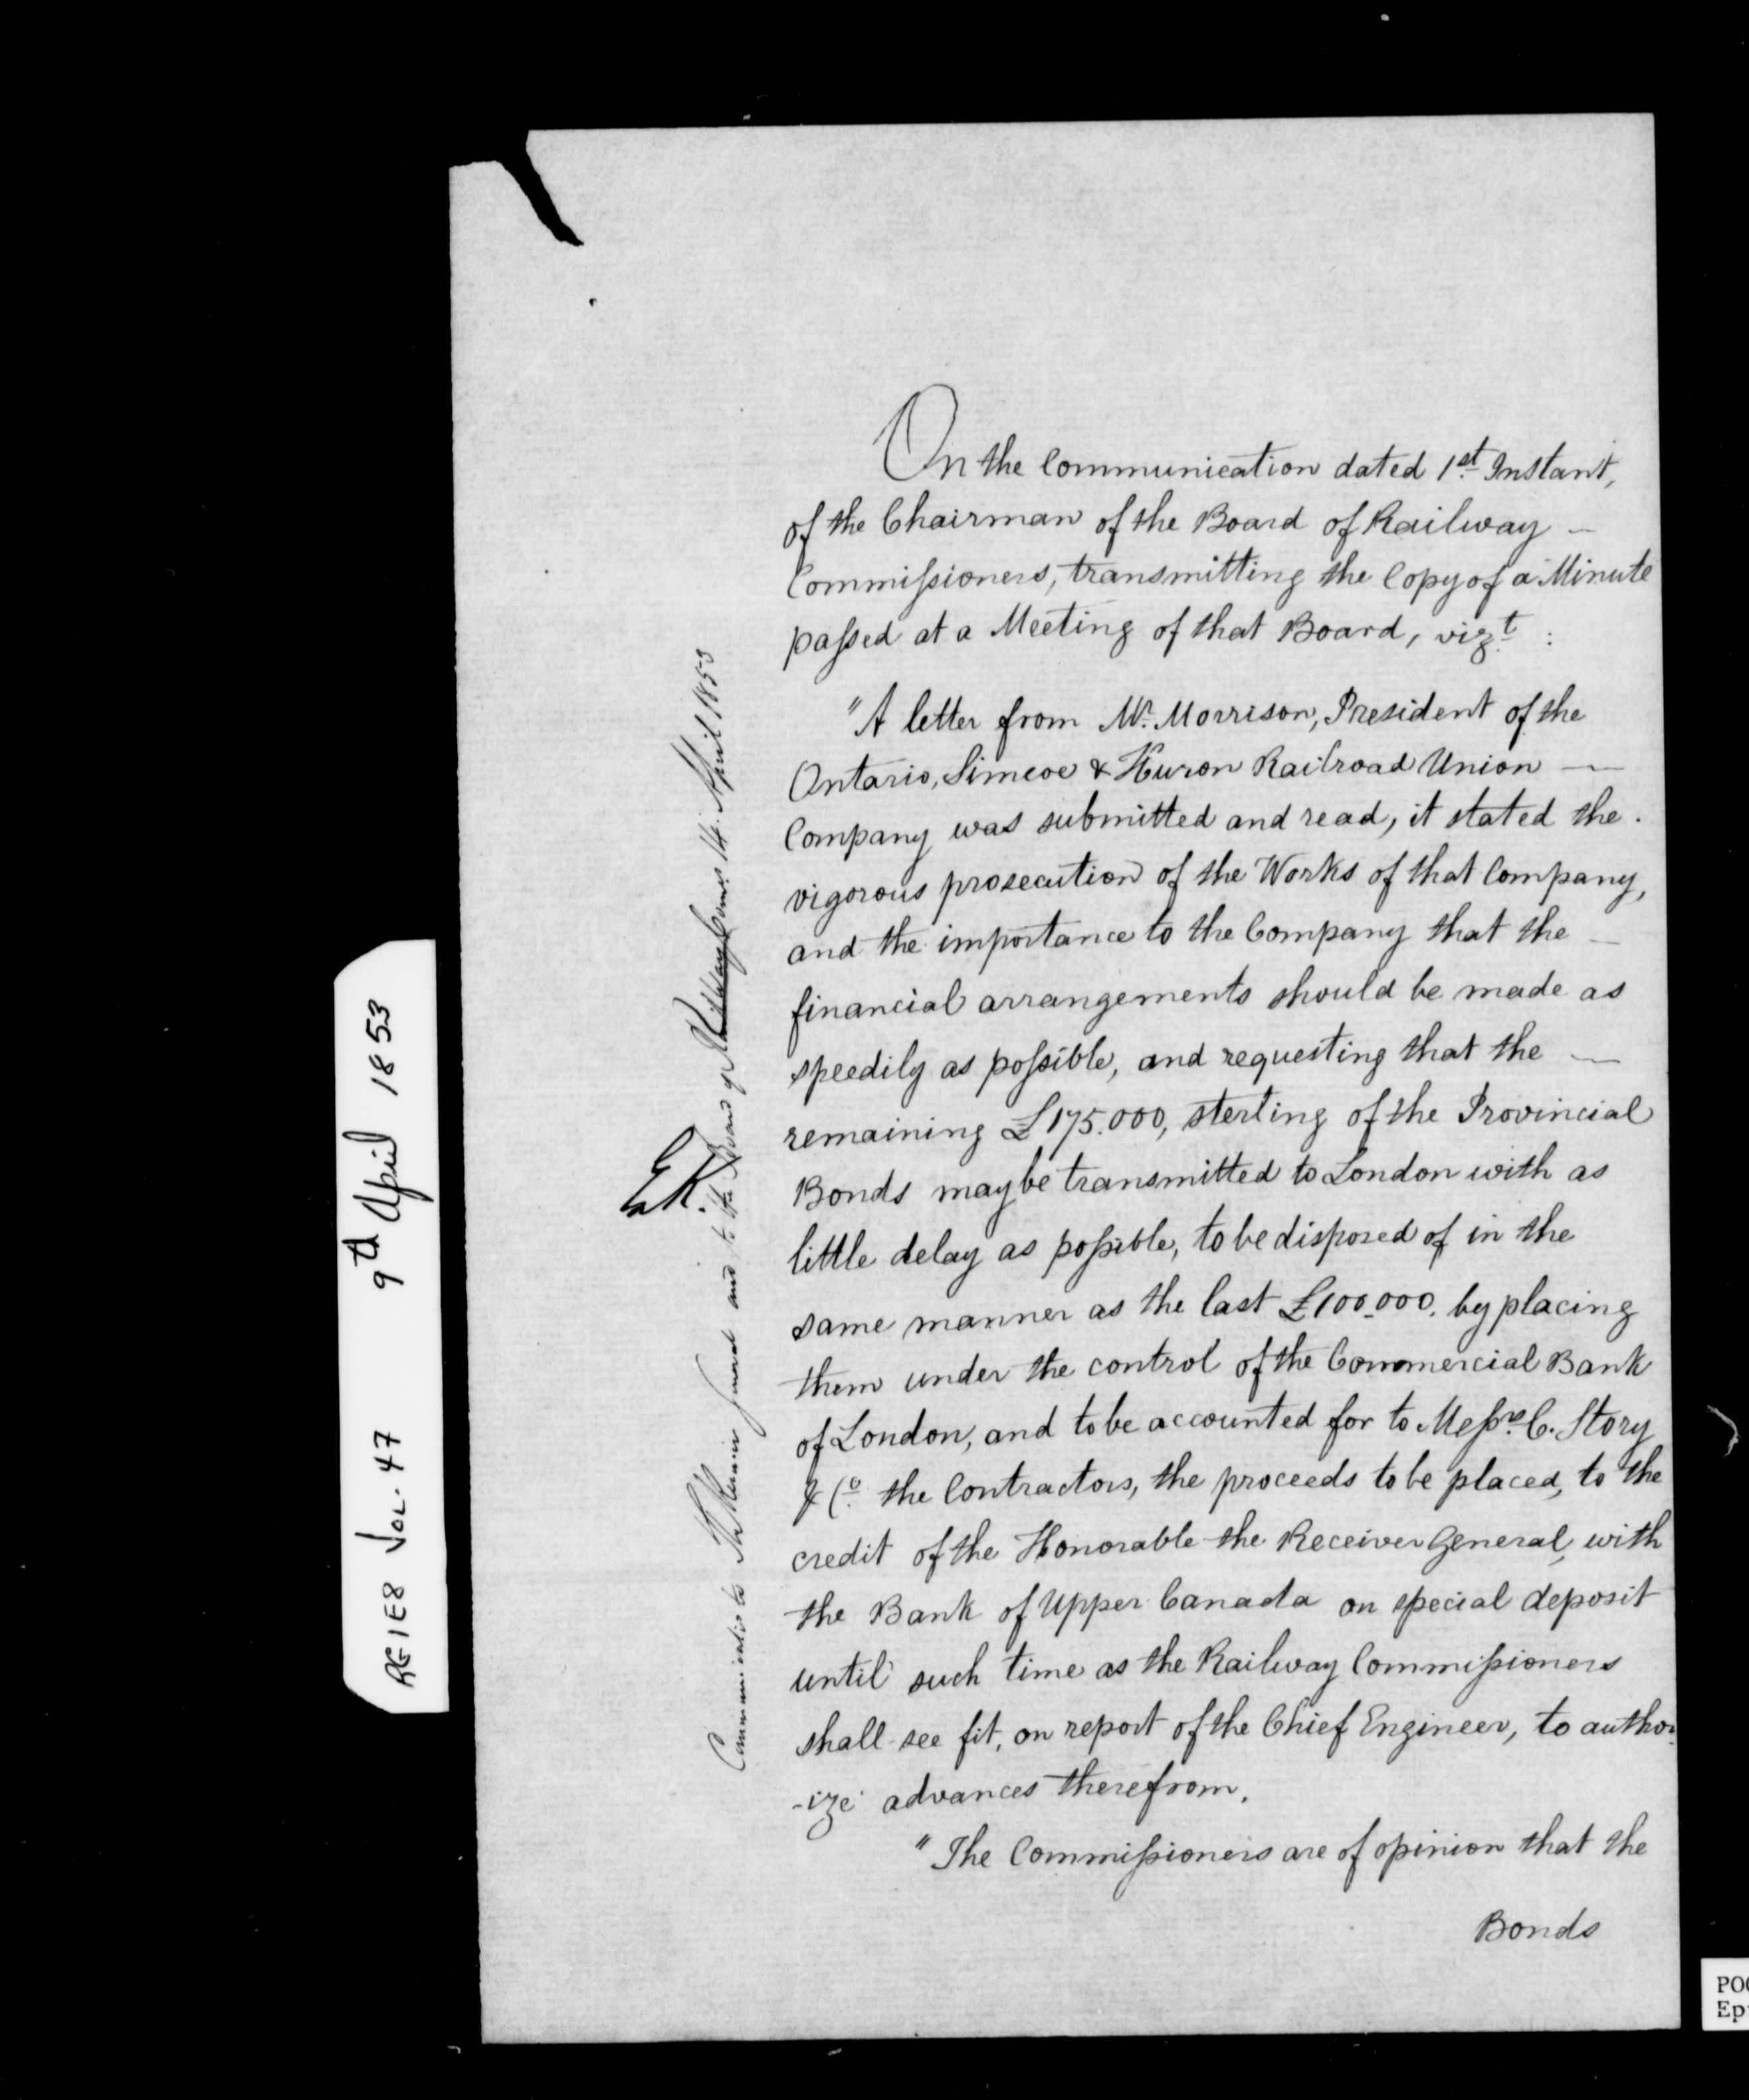 On the Communication dated 1st Instant,
of the Chairman of the Board of Railway —
Commissioners, transmitting the Copy of a Minute
passed at a Meeting of that Board, vizt :
"A letter from Mr. Morrison, President of the
Ontario, Simcoe & Huron Railroad Union —
Company was submitted and read, it stated the
vigorous prosecution of the Works of that Company,
and the importance to the Company that the —
financial arrangements should be made as
speedily as possible, and requesting that the —
remaining £175.000, sterling of the Provincial
Bonds may be transmitted to London with as
little delay as possible, to be disposed of in the
same manner as the last £100.000. by placing
them under the control of the Commercial Bank
of London, and to be accounted for to Messrs. C. Story
& Co. the Contractors, the proceeds to be placed, to the
credit of the Honorable the Receiver General, with
the Bank of Upper Canada on special deposit
until such time as the Railway Commissioners
shall see fit, on report of the Chief Engineer, to author
-ize advances therefrom.
"The Commissioners are of opinion that the
Bonds
Communicated to the Receiver General and to the Board of Railway Comrs. 14. April 1853
EK.
RG1E8 VOL. 47 9th April 1853